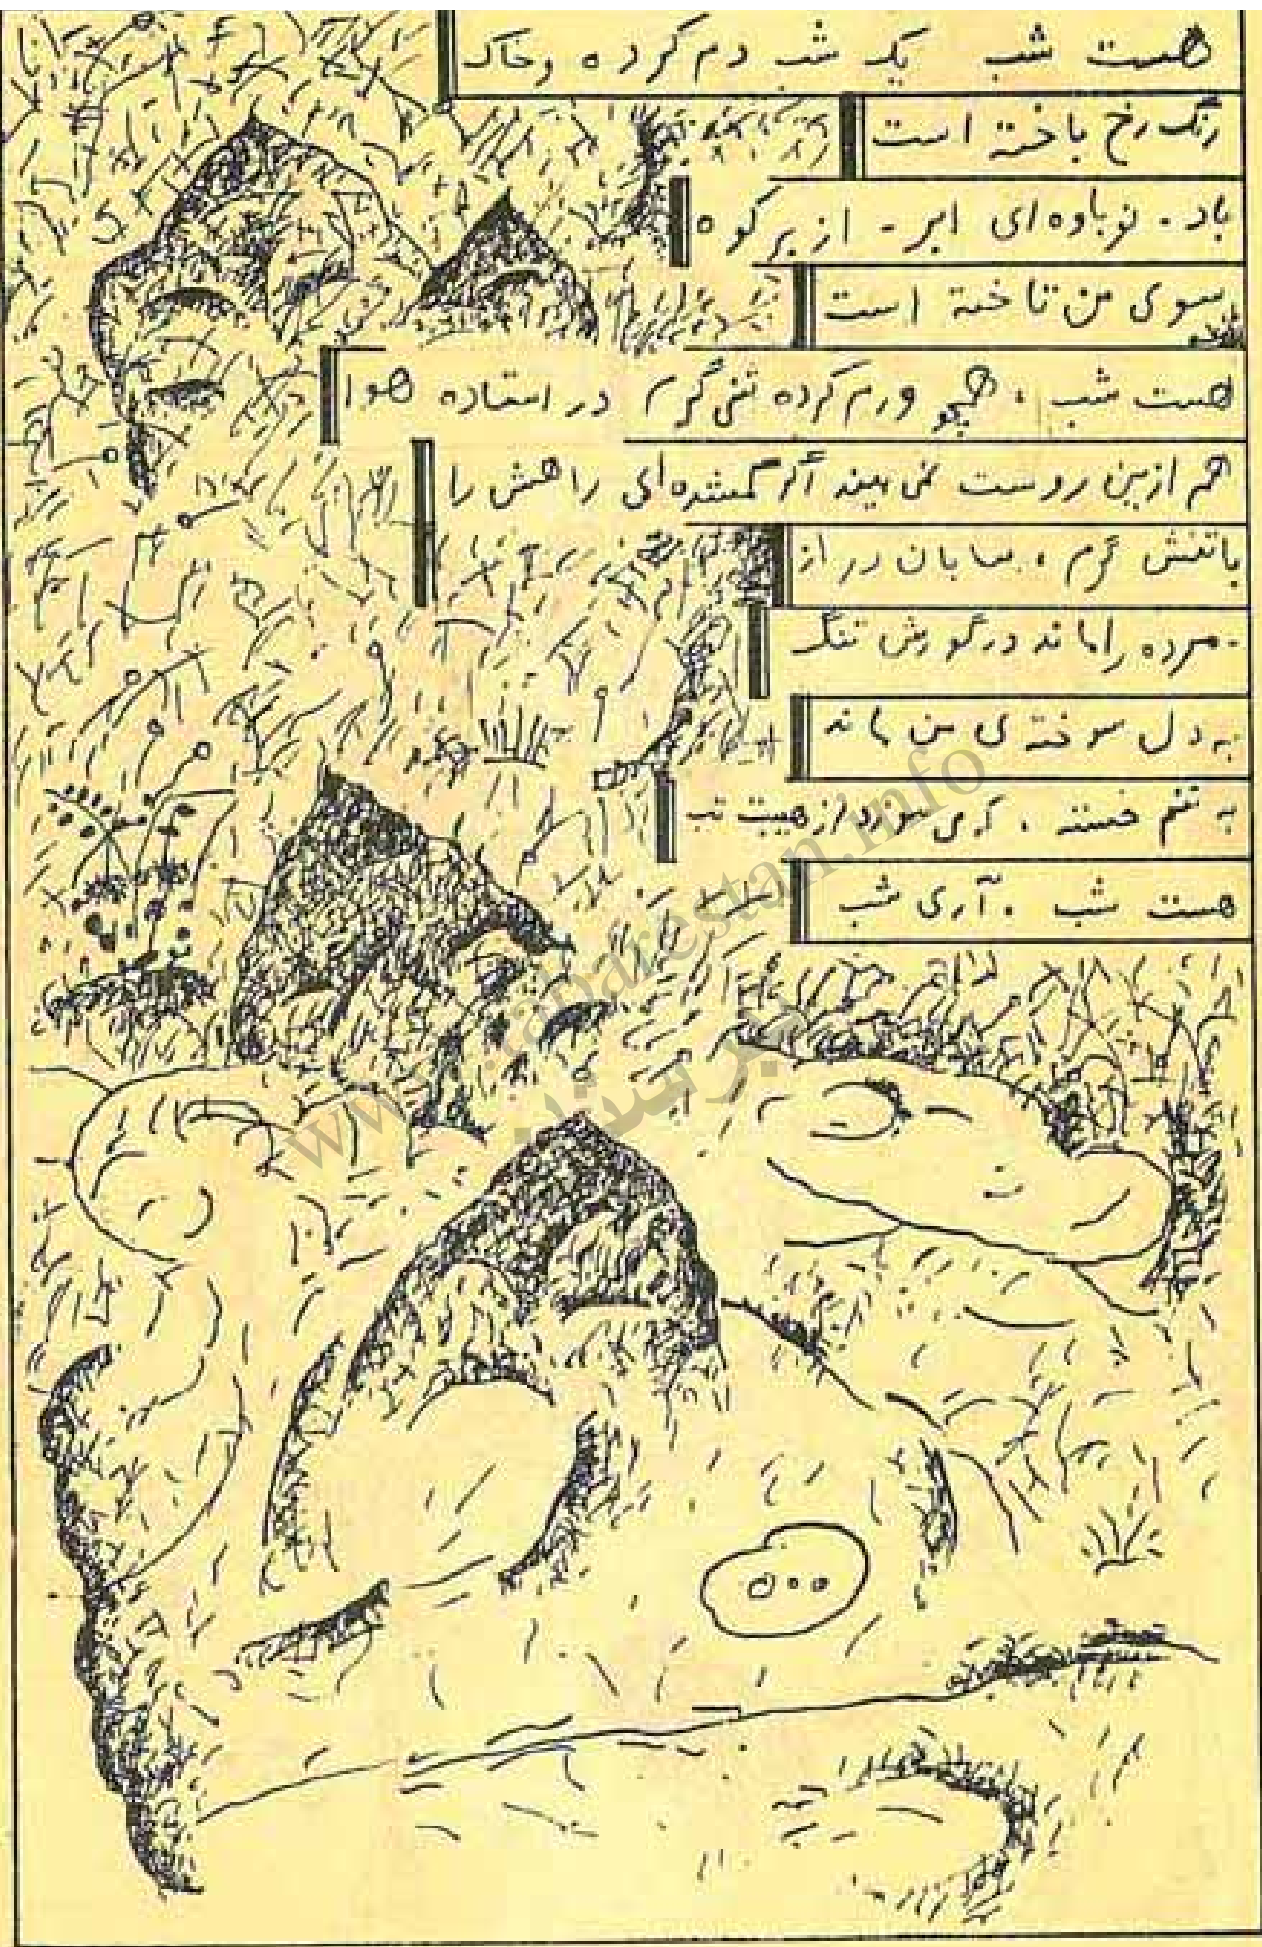 هست شب یک شب دم کرده و خاک
رنگ رخ باخته است
باد، نوباوه‌ای ابر - از بر کوه
سوی من تاخته است
هست شب، همچو ورم کرده تنی گرم در استاده هوا
هم ازین روست نمی بیند اگر گمشده‌ای راهش را
با تنش گرم، بیابان دراز
- مرده را ماند در گورش تنگ
به دل سوخته‌ی من ماند
به تنم خسته، که می سوزد از هیبت تب
هست شب، آری شب
www.tabarestan.info
تبرستان